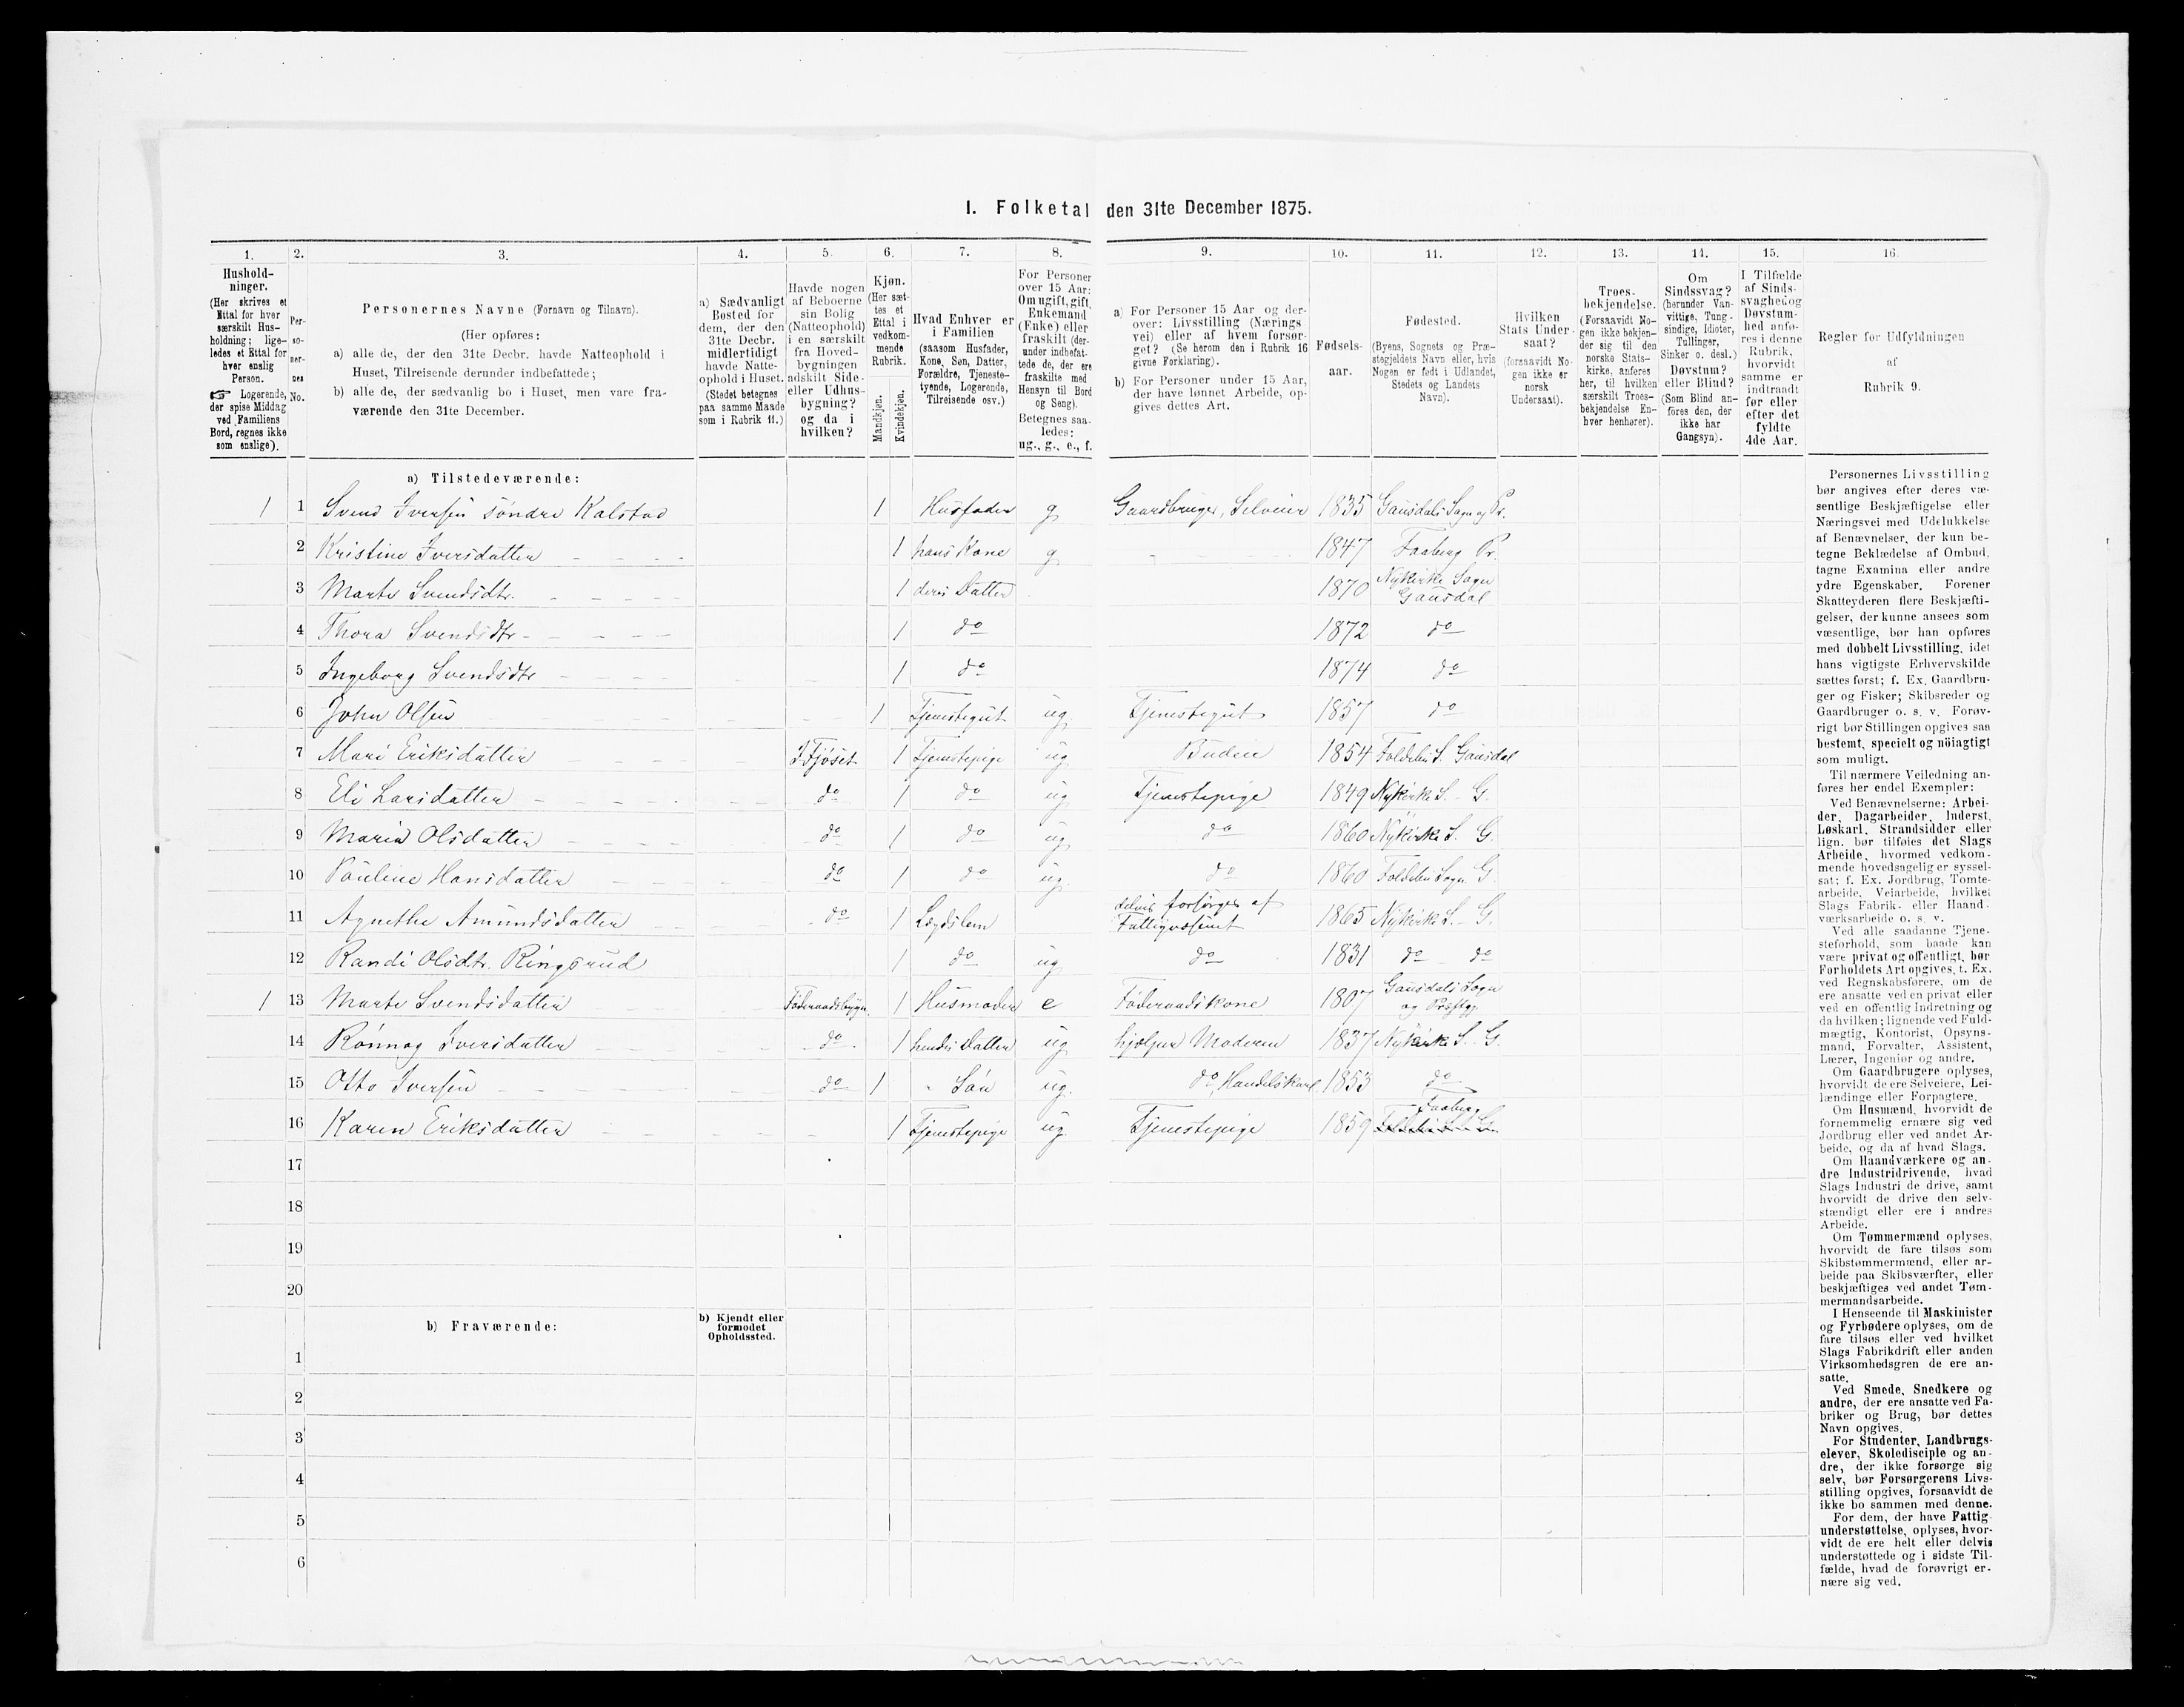 I. Folketal den 31te December 1875.
1. 2. 3. 4. 5. 6. 7. 8. 9. 10. 11. 12. 13. 14. 15. 16.
Hushold-
ninger.
(Her skrives et
Ettal for hver
særskilt Hus-
holdning; lige-
ledes et Ettal for
hver enslig
Person.
☞ Logerende,
der spise Middag
ved Familiens
Bord, regnes ikke
som enslige).
Per-
so-
ner-
nes
No.
Personernes Navne (Fornavn og Tilnavn).
(Her opføres:
a) alle de, der den 31te Decbr. havde Natteophold i
Huset, Tilreisende derunder indbefattede;
b) alle de, der sædvanlig bo i Huset, men vare fra-
værende den 31te December.
a) Sædvanligt
Bosted for
dem, der den
31te Decbr.
midlertidigt
havde Natte-
ophold i Huset.
(Stedet betegnes
paa samme Maade
som i Rubrik 11.)
Havde nogen
af Beboerne
sin Bolig
(Natteophold)
i en særskilt
fra Hoved-
bygningen
adskilt Side-
eller Udhus-
bygning?
og da i
hvilken?
Kjøn.
(Her sæt-
tes et
Ettal i
vedkom-
mende
Rubrik.
Mandkjøn.
Kvindekjøn.
Hvad Enhver er
i Familien
(saasom Husfader,
Kone, Søn, Datter,
Forældre, Tjeneste-
tyende, Logerende,
Tilreisende osv.)
For Personer
over 15 Aar:
Om ugift, gift,
Enkemand
(Enke) eller
fraskilt (der-
under indbefat-
tede de, der ere
fraskilte med
Hensyn til Bord
og Seng).
Betegnes saa-
ledes:
ug., g., e., f.
a) For Personer 15 Aar og der-
over: Livsstilling (Nærings-
vei) eller af hvem forsør-
get? (Se herom den i Rubrik 16
givne Forklaring).
b) For Personer under 15 Aar,
der have lønnet Arbeide, op-
gives dettes Art.
Fødsels-
aar.
Fødested.
(Byens, Sognets og Præ-
stegjeldets Navn eller, hvis
Nogen er født i Udlandet,
Stedets og Landets
Navn).
Hvilken
Stats Under-
saat?
(forsaavidt No-
gen ikke er
norsk
Undersaat).
Troes-
bekjendelse.
(Forsaavidt No-
gen ikke bekjen-
der sig til den
norske Stats-
kirke, anføres
her, til hvilken
særskilt Troes-
bekjendelse En-
hver henhører).
Om
Sindssvag?
(herunder Van-
vittige, Tung-
sindige, Idioter,
Tullinger,
Sinker o. desl.)
Døvstum?
eller Blind?
(Som Blind an-
føres den, der
ikke har
Gangsyn).
I Tilfælde
af Sinds-
svaghed og
Døvstum-
hed anfø-
res i denne
Rubrik,
hvorvidt
samme er
indtraadt
før eller
efter det
fyldte
4de Aar.
Regler for Udfyldningen
af
Rubrik 9.
a) Tilstedeværende:
1 1 Svend Iversen søndre Kalstad 1 Husfader g Gaardbruger, Selveier 1835 Gausdals Sogn og Pr.
2 Kristine Iversdatter 1 hans Kone g 1847 Faaberg Pr.
3 Marte Svendsdtr. 1 deres Datter 1870 Nykirke Sogn Gausdal
4 Thora Svendsdtr 1 do 1872 do
5 Ingeborg Svendsdtr 1 do 1874 do
6 John Olsen 1 Tjenestegut ug. Tjenestegut 1857 do
7 Mari Eriksdatter I Fjøset 1 Tjenestepige ug Budeie 1854 Foldebu S. Gausdal
8 Eli Larsdatter do 1 do ug Tjenestepige 1849 Nykirke S. G.
9 Maria Olsdatter do 1 do ug do 1860 Nykirke S. G.
10 Pauline Hansdatter do 1 do ug. do 1860 Foldebu Sogn G.
11 Agnethe Amundsdatter do 1 Lægdslem delvis forsørges af Fattigvæsenet 1865 Nykirke S. G.
12 Randi Olsdtr. Ringsrud 1 do ug do 1831 do do
1 13 Marte Svendsdatter Føderaadsbygn. 1 Husmoder e Føderaadskone 1807 Gausdals Sogn og Præstgj.
14 Rønnog Iversdatter do 1 hendes Datter ug hjælper Moderen 1837 Nykirke S. G.
15 Otto Iversen do 1 " Søn ug. do, Handelskarl 1853 do
16 Karen Eriksdatter 1 Tjenestepige ug. Tjenestepige 1859 Faaberg
17
18
19
20
b) Fraværende:
b) Kjendt eller
formodet
Opholdssted.
1
2
3
4
5
6
Personernes Livsstilling
bør angives efter deres væ-
sentlige Beskjæftigelse eller
Næringsvei med Udelukkelse
af Benævnelser, der kun be-
tegne Beklædelse af Ombud,
tagne Examina eller andre
ydre Egenskaber. Forener
Skatteyderen flere Beskjæfti-
gelser, der kunne ansees som
væsentlige, bør han opføres
med dobbelt Livsstilling, idet
hans vigtigste Erhvervskilde
sættes først; f. Ex. Gaardbru-
ger og Fisker; Skibsreder og
Gaardbruger o. s. v. Forøv-
rigt bør Stillingen opgives saa
bestemt, specielt og nöiagtigt
som muligt.
Til nærmere Veiledning an-
føres her endel Exempler:
Ved Benævnelserne: Arbei-
der, Dagarbeider, Inderst,
Løskarl, Strandsidder eller
lign. bør tilføies det Slags
Arbeide, hvormed vedkom-
mende hovedsagelig er syssel-
sat; f. Ex. Jordbrug, Tomte-
arbeide, Veiarbeide, hvilket
Slags Fabrik- eller Haand-
værksarbeide o. s. v.
Ved alle saadanne Tjene-
steforhold, som baade kan
være privat og offentligt, bør
Forholdets Art opgives, t. Ex.
ved Regnskabsførere, om de
ere ansatte ved en privat eller
ved en offentlig Indretning og
da hvilken; lignende ved Fuld-
mægtig, Kontorist, Opsyns-
mand, Forvalter, Assistent,
Lærer, Ingeniør og andre.
Om Gaardbrugere oplyses,
hvorvidt de ere Selveiere, Lei-
lændinge eller Forpagtere.
Om Husmænd, hvorvidt de
fornemmelig ernære sig ved
Jordbrug eller ved andet Ar-
beide, og da af hvad Slags.
Om Haandværkere og an-
dre Industridrivende, hvad
Slags Industri de drive, samt
hvorvidt de drive den selv-
stændigt eller ere i andres
Arbeide.
Om Tømmermænd oplyses,
hvorvidt de fare tilsøs som
Skibstømmermænd, eller ar-
beide paa Skibsværfter, eller
beskjæftiges ved andet Tøm-
mermandsarbeide.
I Henseende til Maskinister
og Fyrbødere oplyses, om de
fare tilsøs eller ved hvilket
Slags Fabrikdrift eller anden
Virksomhedsgren de ere an-
satte.
Ved Smede, Snedkere og
andre, der ere ansatte ved Fa-
briker og Brug, bør dettes
Navn opgives.
For Studenter, Landbrugs-
elever, Skoledisciple og an-
dre, der ikke forsørge sig
selv, bør Forsørgerens Livs-
stilling opgives, forsaavidt de
ikke bo sammen med denne.
For dem, der have Fattig-
understøttelse, oplyses, hvor-
vidt de ere helt eller delvis
understøttede og i sidste Til-
fælde, hvad de forøvrigt er-
nære sig ved.